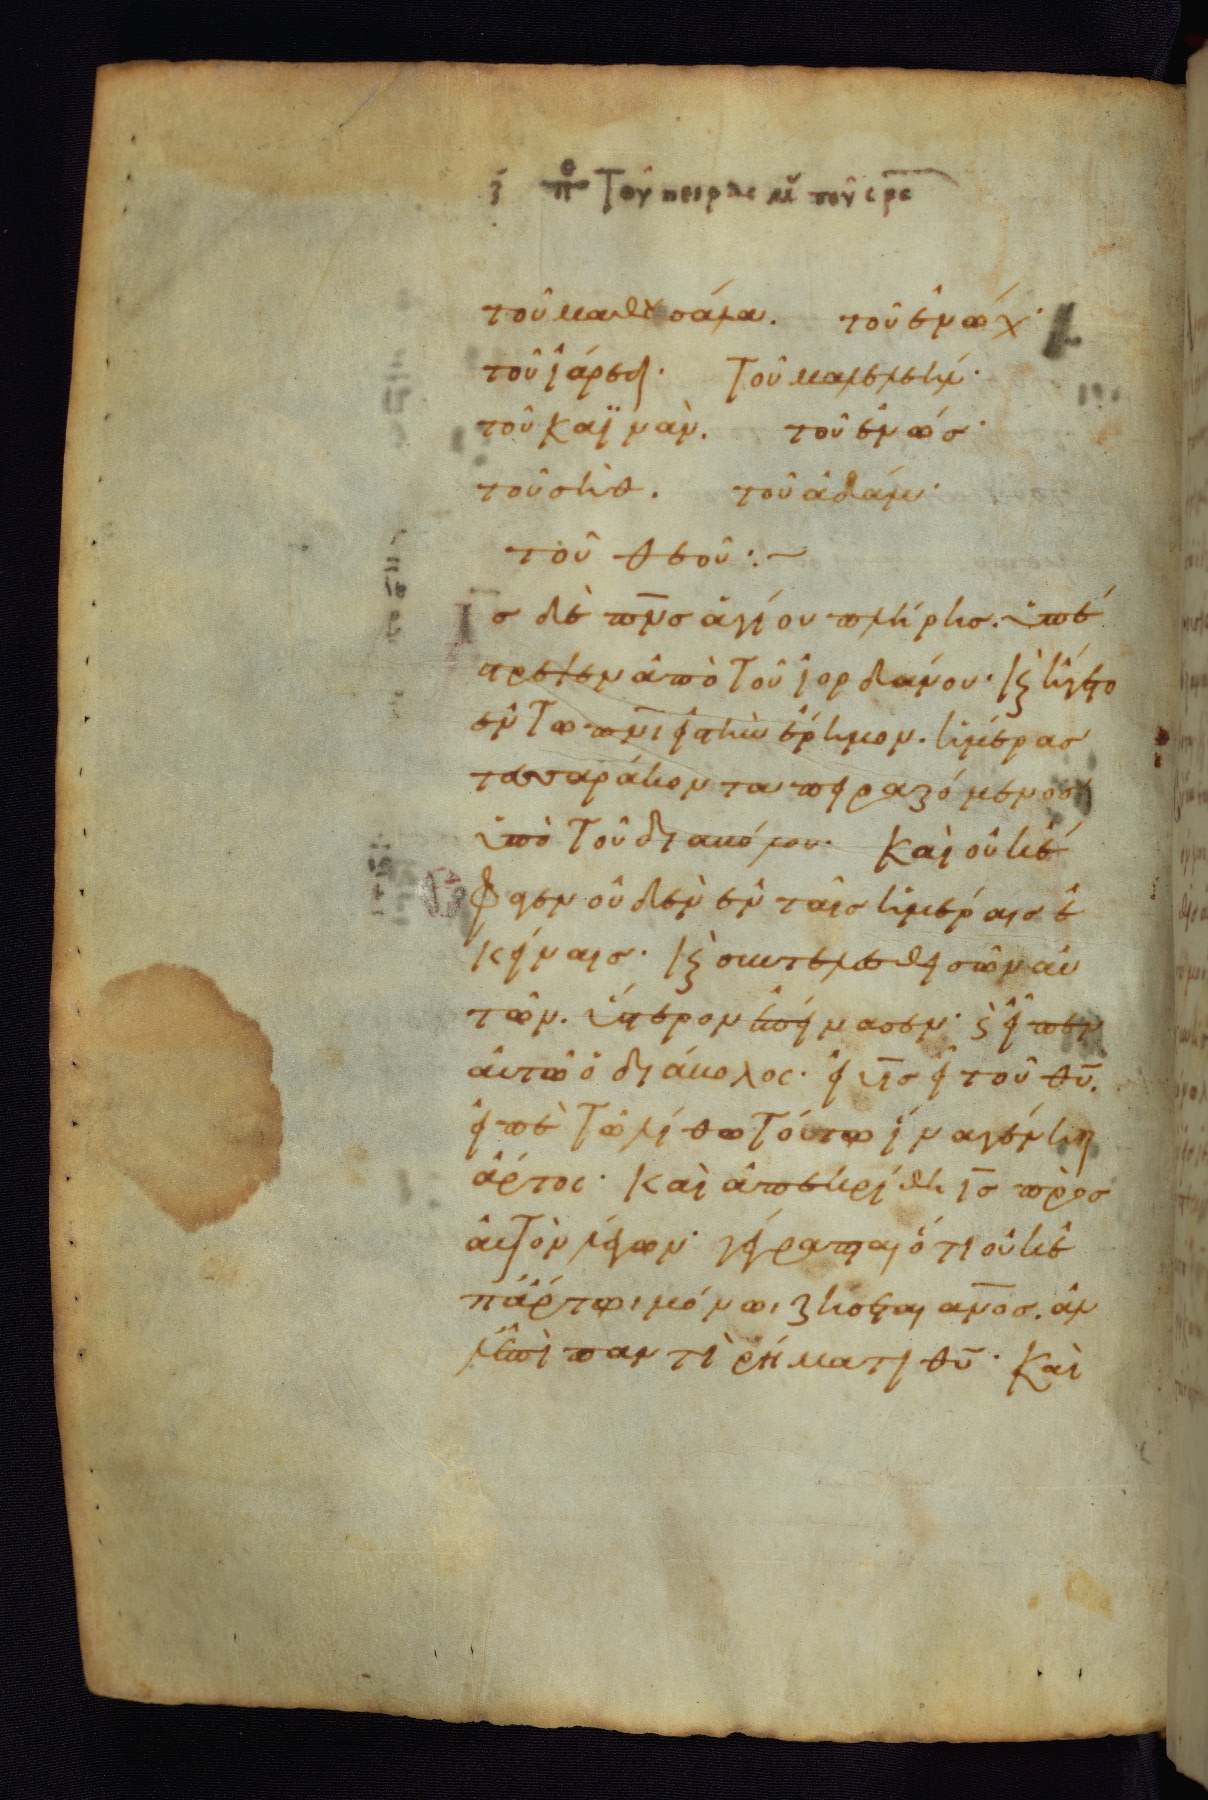 ζ Περὶ Τοῦ πειρασμοῦ τοῦ σρσ
τοῦ μαθουσάλα. τοῦ ἐνώχ·
τοῦ ἰάρεδ· τοῦ μαλελεήλ·
τοῦ καϊνάν. τοῦ ἐνώσ·
τοῦ σήθ. τοῦ ἀδάμ·
τοῦ θεοῦ :~
Ισ δὲ πνσ ἁγίου πλήρησ. ὑπέ
στρεψεν ἀπὸ τοῦ ἰορδάνου· κ ἤγετο
ἐν τω πνι εἰς τὴν ἔρημον. ἡμέρασ
τεσσαράκοντα πειραζόμενοσ
ὑπὸ τοῦ διαβόλου· καὶ οὐκ ἔ
φαγεν οὐδὲν ἐν ταῖσ ἡμέραισ ἐ
κείναισ· κ συντελεσθεισῶν αὐ
τῶν. ὕστερον ἐπείνασεν· κ εἶπεν
αὐτῶ ὁ διάβολος· εἰ υἱσ εἶ τοῦ θυ.
εἰπὲ τῶ λίθω τούτω ἵνα γένηται
ἄρτος· καὶ ἀπεκρίθη ισ πρὸσ
αὐτὸν λέγων· γέγραπται ὅτι οὐκ ἐ
π ἄρτωι μόνωι ζήσεται ανοσ. ἀλ
λ ἐπὶ παντὶ ῥήματι θυ· καὶ